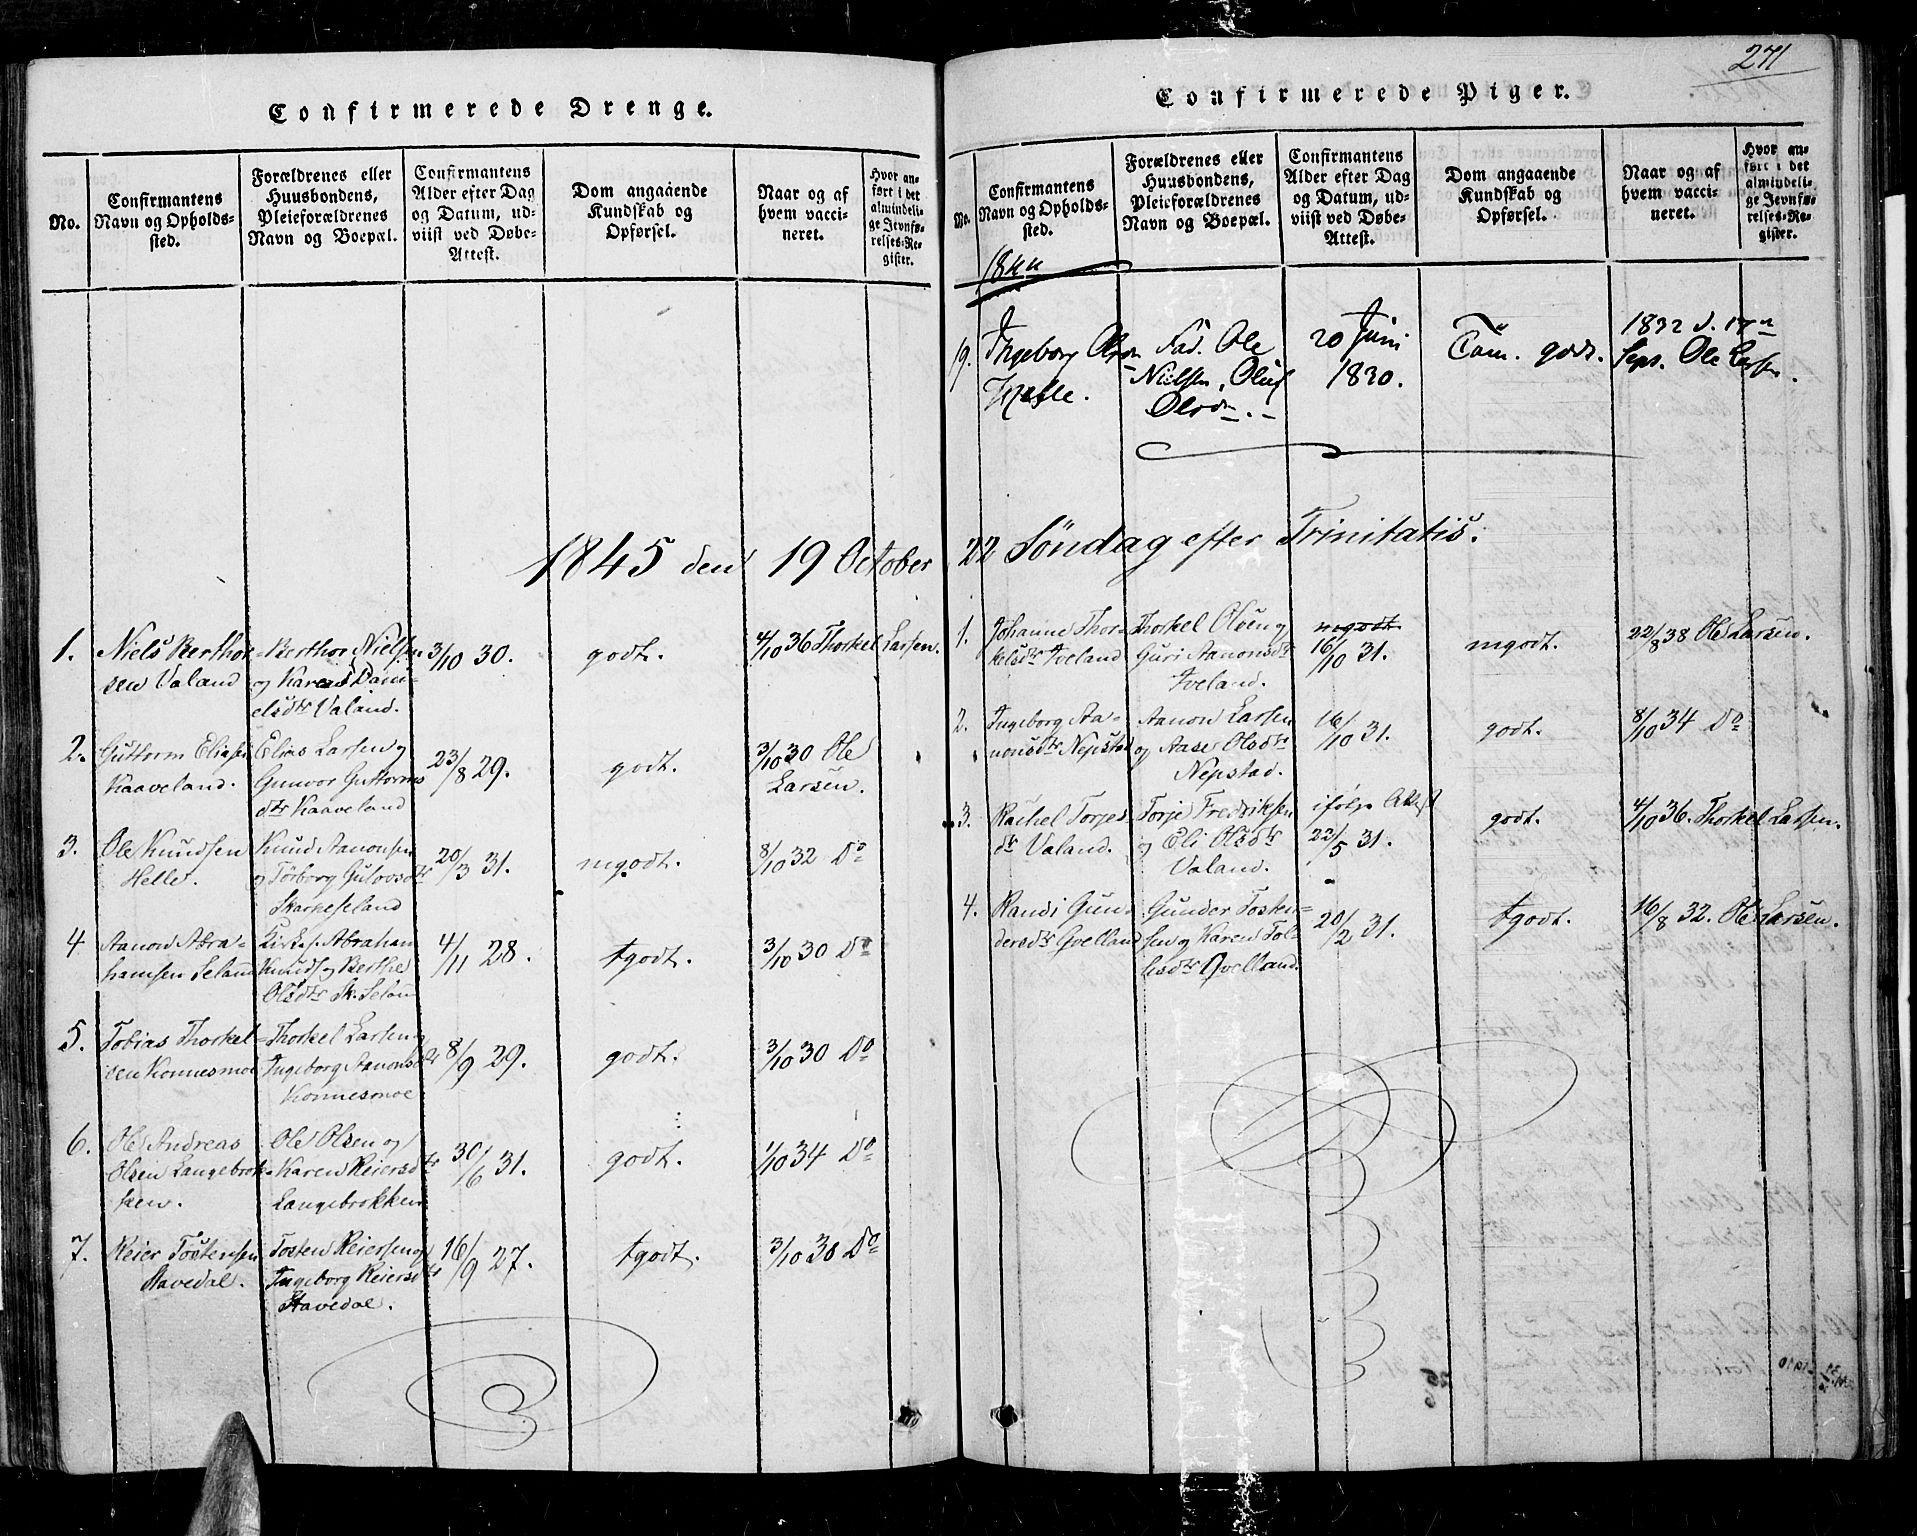 Confirmerede Drenge.
No.
Confirmantens
Navn og Opholds-
sted.
Forældrenes eller
Huusbondens,
Pleieforældrenes
Navn og Boepæl.
Confirmantens
Alder efter Dag
og Datum, ud-
viist ved Døbe-
Attest.
Dom angaaende
Kundskab og
Opførsel.
Naar og af
hvem vacci-
neret.
Hvor an-
ført i det
almindeli-
ge Jevnfø-
relses-Re-
gister.
1845 den 19 October
1.
Niels Berthor
sen Valand
Berthor Nielsen
og Karen Dani-
elsdtr Valand.
3/10 30.
godt.
4/10 36 Thorkel Larsen.
2.
Guttorm Eliasen
Kaaveland.
Elias Larsen og
Gunvor Guttorms
dtr Kaaveland
23/8 29.
godt.
3/10 30 Ole
Larsen.
3.
Ole Knudsen
Helle.
Knud Aanonsen
og Torborg Gulovsdtr
Skarkeseland
20/3 31.
mgodt.
8/10 32 Do
4
Aanon Abra-
hamsen Seland
Kirkes. Abraham
Knuds. og Berthe
Olsdtr Sk. Seland
4/11 28.
tgodt.
3/10 30 Do
5.
Tobias Thorkel-
sen Konnesmoe
Thorkel Larsen og
Ingeborg Aanonsdtr
Konnesmoe
8/9 29.
godt.
3/10 30 Do
6.
Ole Andreas
Olsen Langebrok-
ken.
Ole Olsen og
Karen Reiersdtr
Langebrokken
30/6 31.
godt.
1/10 34 Do
7.
Reier Tostensen
Stavedal.
Tosten Reiersen og
Ingeborg Reiersdtr
Stavedal.
16/9 27.
tgodt.
3/10 30 Do
271
Confirmerede Piger.
No.
Confirmantens
Navn og Opholds-
sted.
Forældrenes eller
Huusbondens,
Pleieforældrenes
Navn og Boepæl.
Confirmantens
Alder efter Dag
og Datum, ud-
viist ved Døbe-
Attest.
Dom angaaende
Kundskab og
Opførsel.
Naar og af
hvem vacci-
neret.
Hvor an-
ført i det
almindeli-
ge Jevnfø-
relses-Re-
gister.
1844
19.
Ingeborg Olsen
Helle.
Fad. Ole
Nielsen, Oluf
Olsdn.
20 Juni
1830.
Tem. godt.
1832 d. 17n
Sept. Ole Larsen.
22 Søndag efter Trinitatis.
1.
Johanne Thor-
kelsdtr Iveland
Thorkel Olsen og
Guri Aanonsdtr
Iveland.
mgodt
16/10 31.
mgodt.
22/8 38 Ole Larsen.
2.
Ingeborg Aa-
nonsdtr Nepstad
Aanon Larsen
og Aase Olsdtr
Nepstad.
16/10 31.
godt.
8/10 34 Do
3.
Rachel Torjes
dtr Valand.
Torje Fredriksen
og Eli Olsdtr
Valand.
ifølge Attest
22/5 31.
godt.
4/10 36. Thorkel Larsen.
4.
Randi Gun-
dersdtr Qvelland
Gunder Tosten-
sen og Karen Tol-
lisdtr Qvelland.
20/2 31.
tgodt.
16/8 32. Ole Larsen.